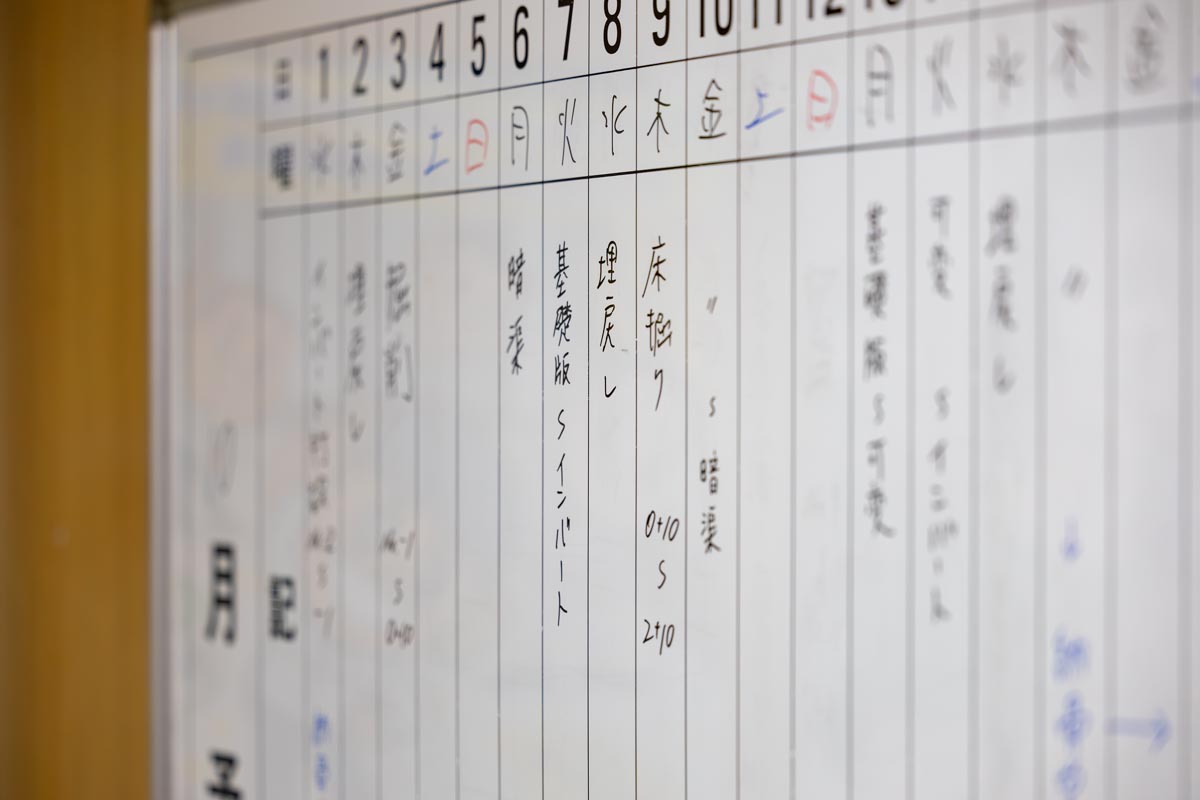 日 1 2 3 4 5 6 7 8 9 10 11 12
曜 水 木 金 土 日 月 火 水 木 金 土 日 月 火 水 木 金
月
記
予
埋戻し
掘削
暗渠
基礎版 S インバート
埋戻し
床掘り 0+10 S 2+10
〃 S 暗渠
基礎版 S 可変
可変 S インバート
埋戻し
〃